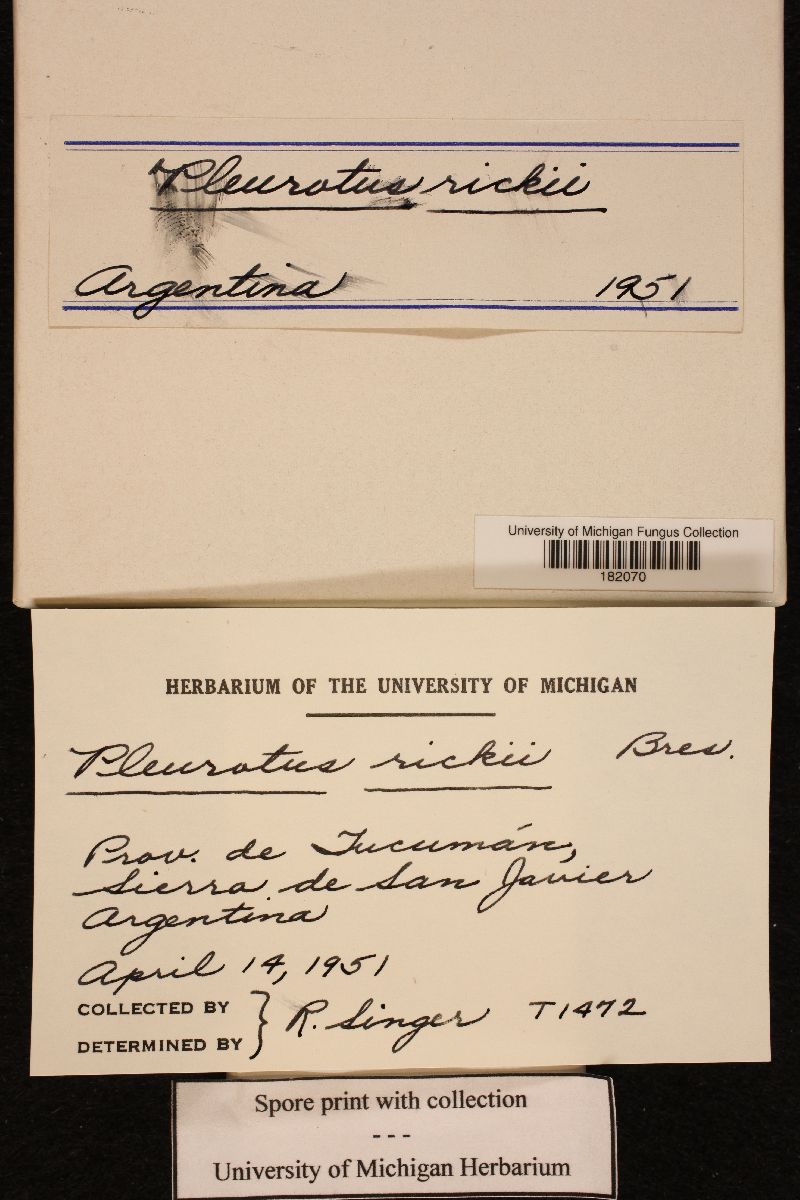 Pleurotus rickii
Argentina 1951
University of Michigan Fungus Collection
182070
HERBARIUM OF THE UNIVERSITY OF MICHIGAN
Pleurotus rickii Bres.
Prov. de Tucumán,
Sierra de San Javier
Argentina
April 14, 1951
COLLECTED BY
DETERMINED BY } R. Singer T1472
Spore print with collection
---
University of Michigan Herbarium